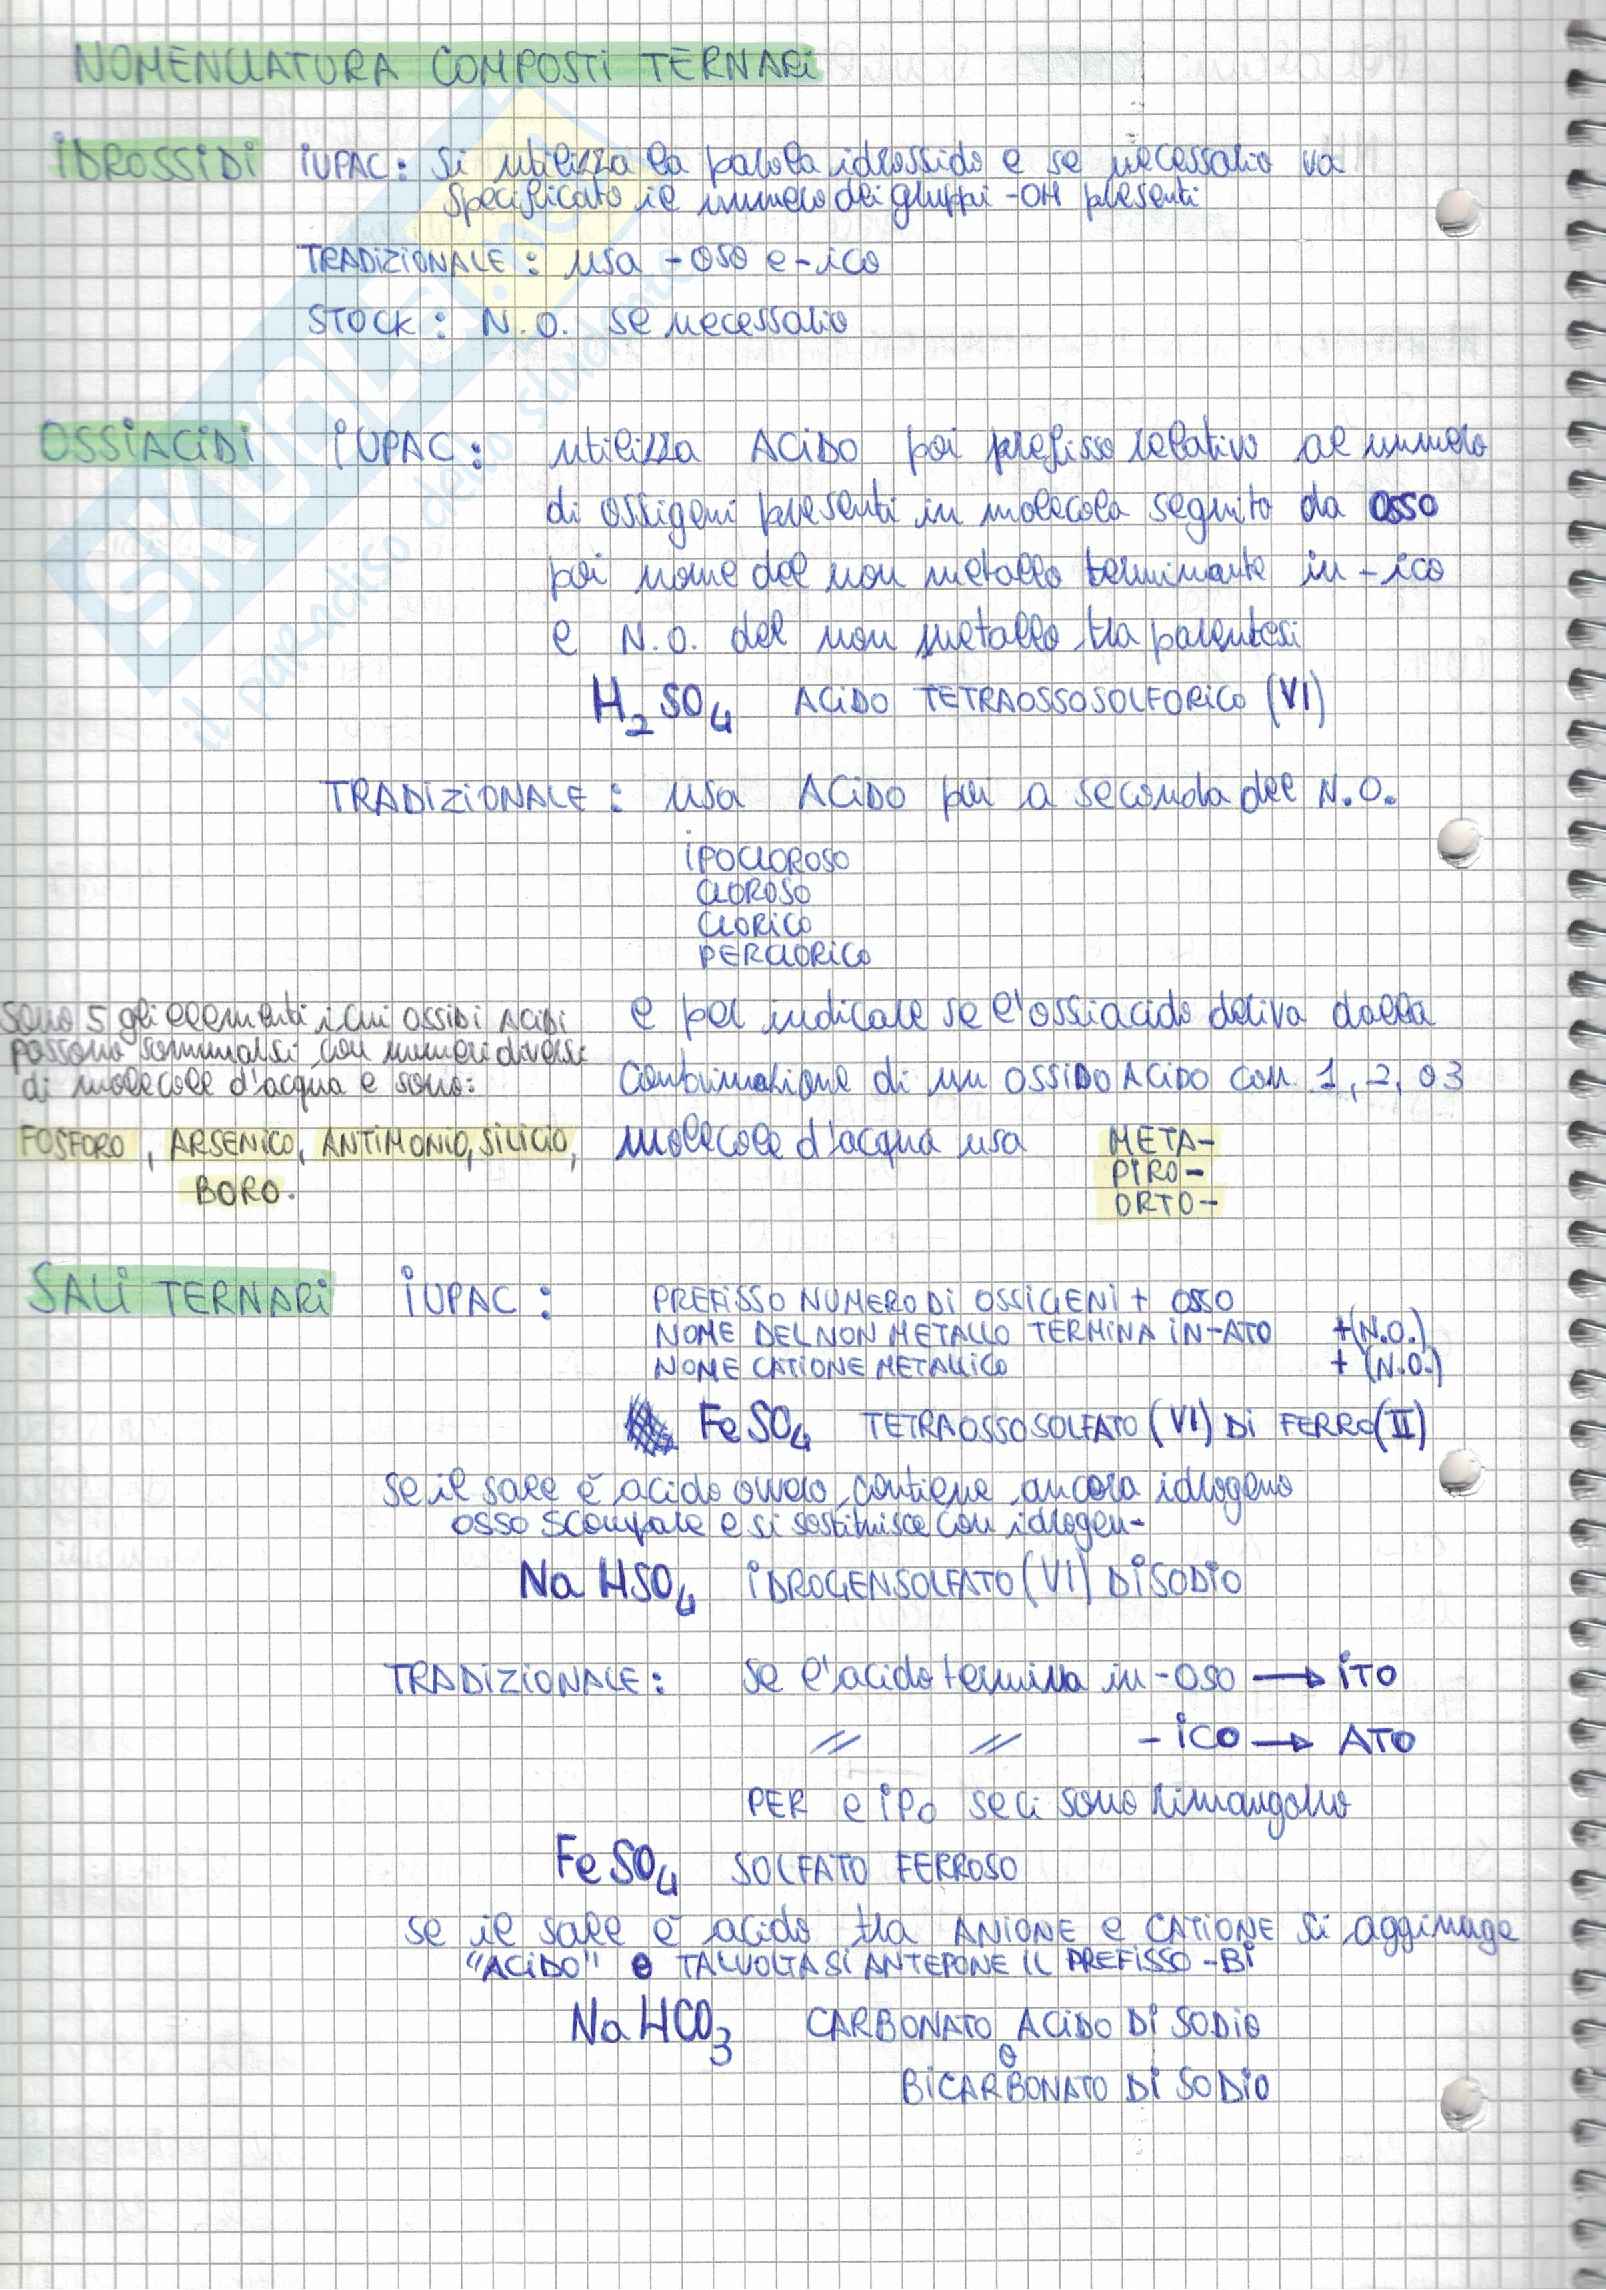 NOMENCLATURA COMPOSTI TERNARI
IDROSSIDI IUPAC: si utilizza la parola idrossido e se necessario va
specificato il numero dei gruppi -OH presenti
TRADIZIONALE: usa -oso e -ico
STOCK: N.O. se necessario
OSSIACIDI IUPAC: utilizza ACIDO poi prefisso relativo al numero
di ossigeni presenti in molecola seguito da OSSO
poi nome del non metallo terminante in -ico
e N.O. del non metallo tra parentesi
H2SO4 ACIDO TETRAOSSOSOLFORICO (VI)
TRADIZIONALE: usa ACIDO poi a seconda del N.O.
IPOCLOROSO
CLOROSO
CLORICO
PERCLORICO
e per indicare se l'ossiacido deriva dalla
combinazione di un OSSIDO ACIDO con 1, 2, o 3
molecole d'acqua usa META-
PIRO-
ORTO-
Sono 5 gli elementi i cui OSSIDI ACIDI
possono sommarsi con numeri diversi
di molecole d'acqua e sono:
FOSFORO, ARSENICO, ANTIMONIO, SILICIO,
BORO.
SALI TERNARI IUPAC: PREFISSO NUMERO DI OSSIGENI + OSSO
NOME DEL NON METALLO TERMINA IN -ATO +(N.O.)
NOME CATIONE METALLICO + (N.O.)
FeSO4 TETRAOSSOSOLFATO (VI) DI FERRO (II)
se il sale è acido ovvero contiene ancora idrogeno
osso scompare e si sostituisce con idrogen-
NaHSO4 IDROGENSOLFATO (VI) DI SODIO
TRADIZIONALE: se l'acido termina in -oso → ITO
// // -ICO → ATO
PER e IPO se ci sono rimangono
FeSO4 SOLFATO FERROSO
se il sale è acido tra ANIONE e CATIONE si aggiunge
"ACIDO" o TALVOLTA SI ANTEPONE IL PREFISSO -BI
NaHCO3 CARBONATO ACIDO DI SODIO
o
BICARBONATO DI SODIO
SKUOLA.net
il paradiso dello studente